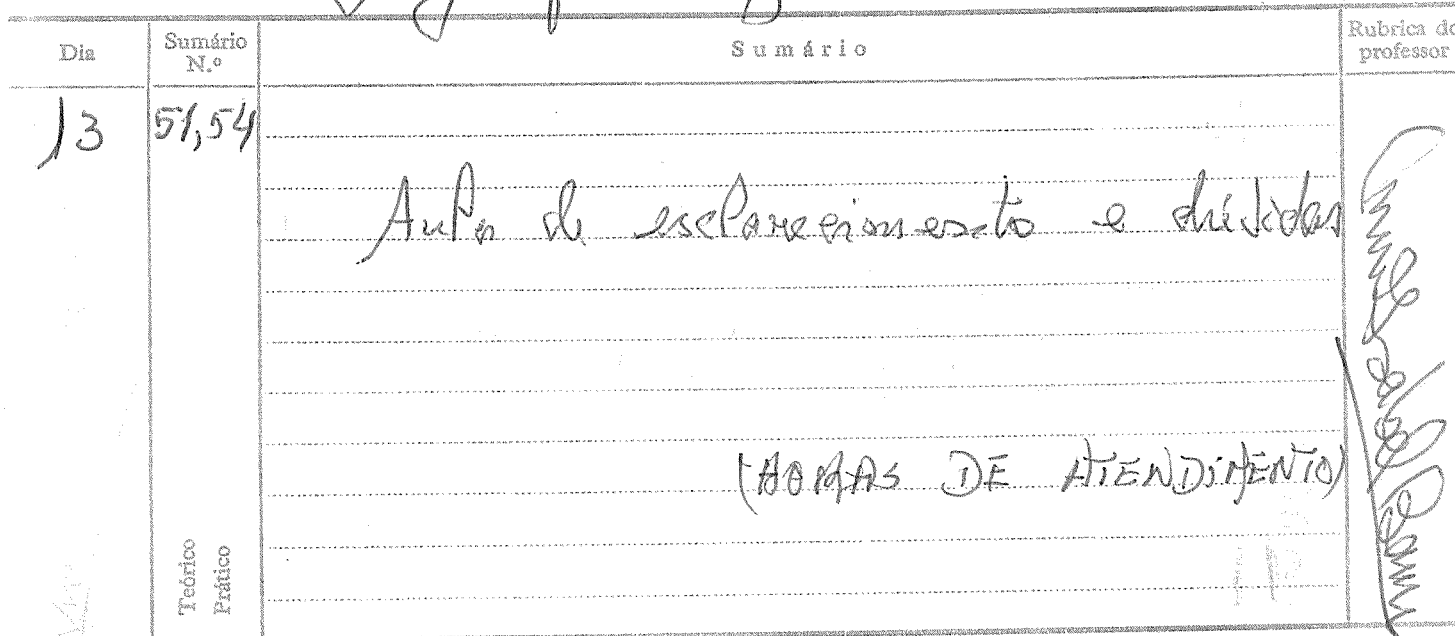 Dia Sumário N.º Sumário Rubrica do professor
13 51,54
Aula de esclarecimento e dúvidas
(HORAS DE ATENDIMENTO)
Teórico
Prático